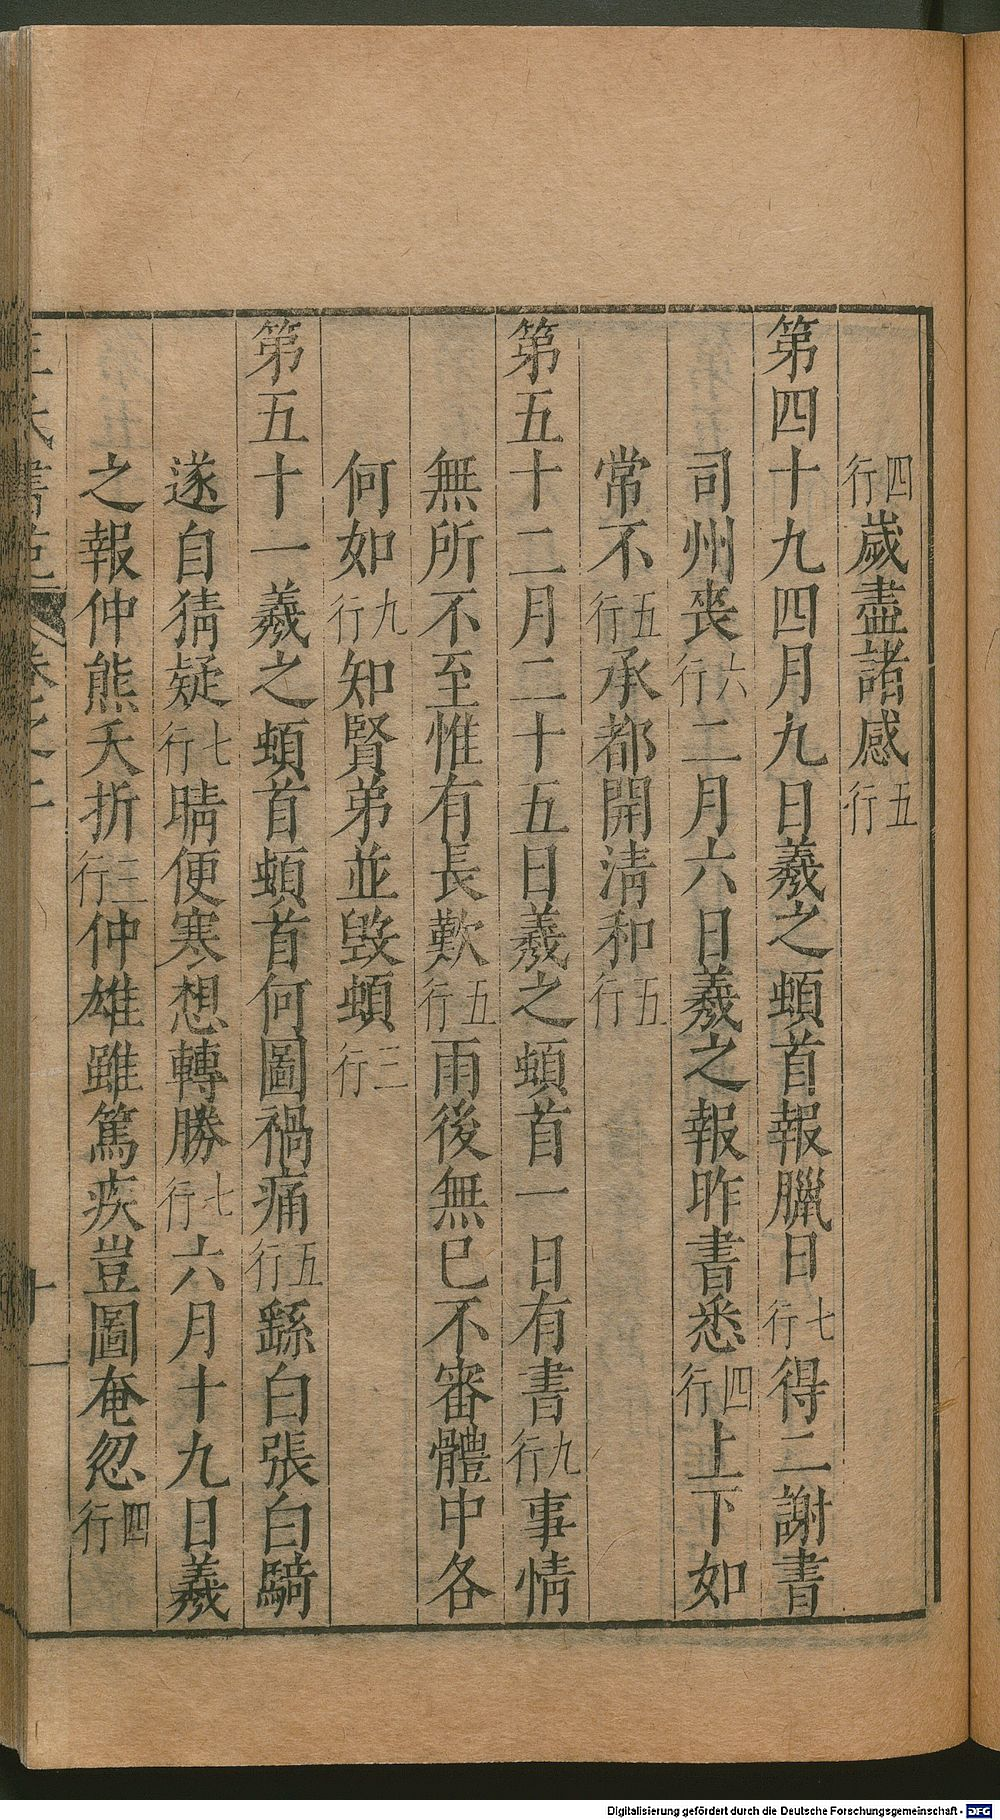 四行歲盡諸感五行
第四十九四月九日羲之頓首報臘日七行得二謝書
司州喪六行二月六日羲之報昨書悉四行上下如
常不五行承都開清和五行
第五十二月二十五日羲之頓首一日有書九行事情
無所不至惟有長歎五行雨後無已不審體中各
何如九行知賢弟並毀頓三行
第五十一羲之頓首頓首何圖禍痛五行繇白張白騎
遂自猜疑七行晴便寒想轉勝七行六月十九日羲
之報仲熊夭折三行仲雄雖篤疾豈圖奄忽四行
王氏書苑 卷之
十
Digitalisierung gefördert durch die Deutsche Forschungsgemeinschaft - DFG